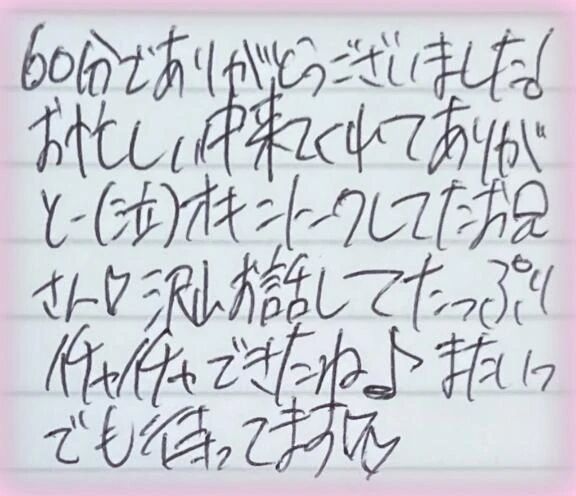 60分でありがとうございました♪
お忙しい中来てくれてありが
とー(泣)オキニトークしてたお兄
さん♡沢山お話してたっぷり
イチャイチャできたね♪またいつ
でも待ってます♡♡